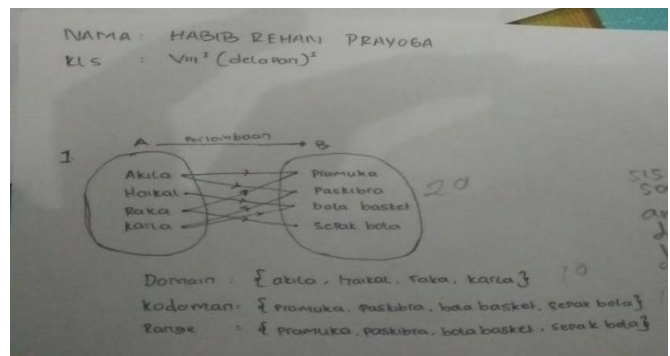 NAMA : HABIB REHAN PRAYOGA
KLS : VIII (delapan)
A B
1
Akila Pramuka
Haikal Paskibra
Raka bola basket
Karla Sepak bola
20
Domain : { akila, Haikal, raka, karla }
10
Kodoman : { Pramuka, Paskibra, bola basket, Sepak bola }
Range : { Pramuka, paskibra, bola basket, sepak bola }